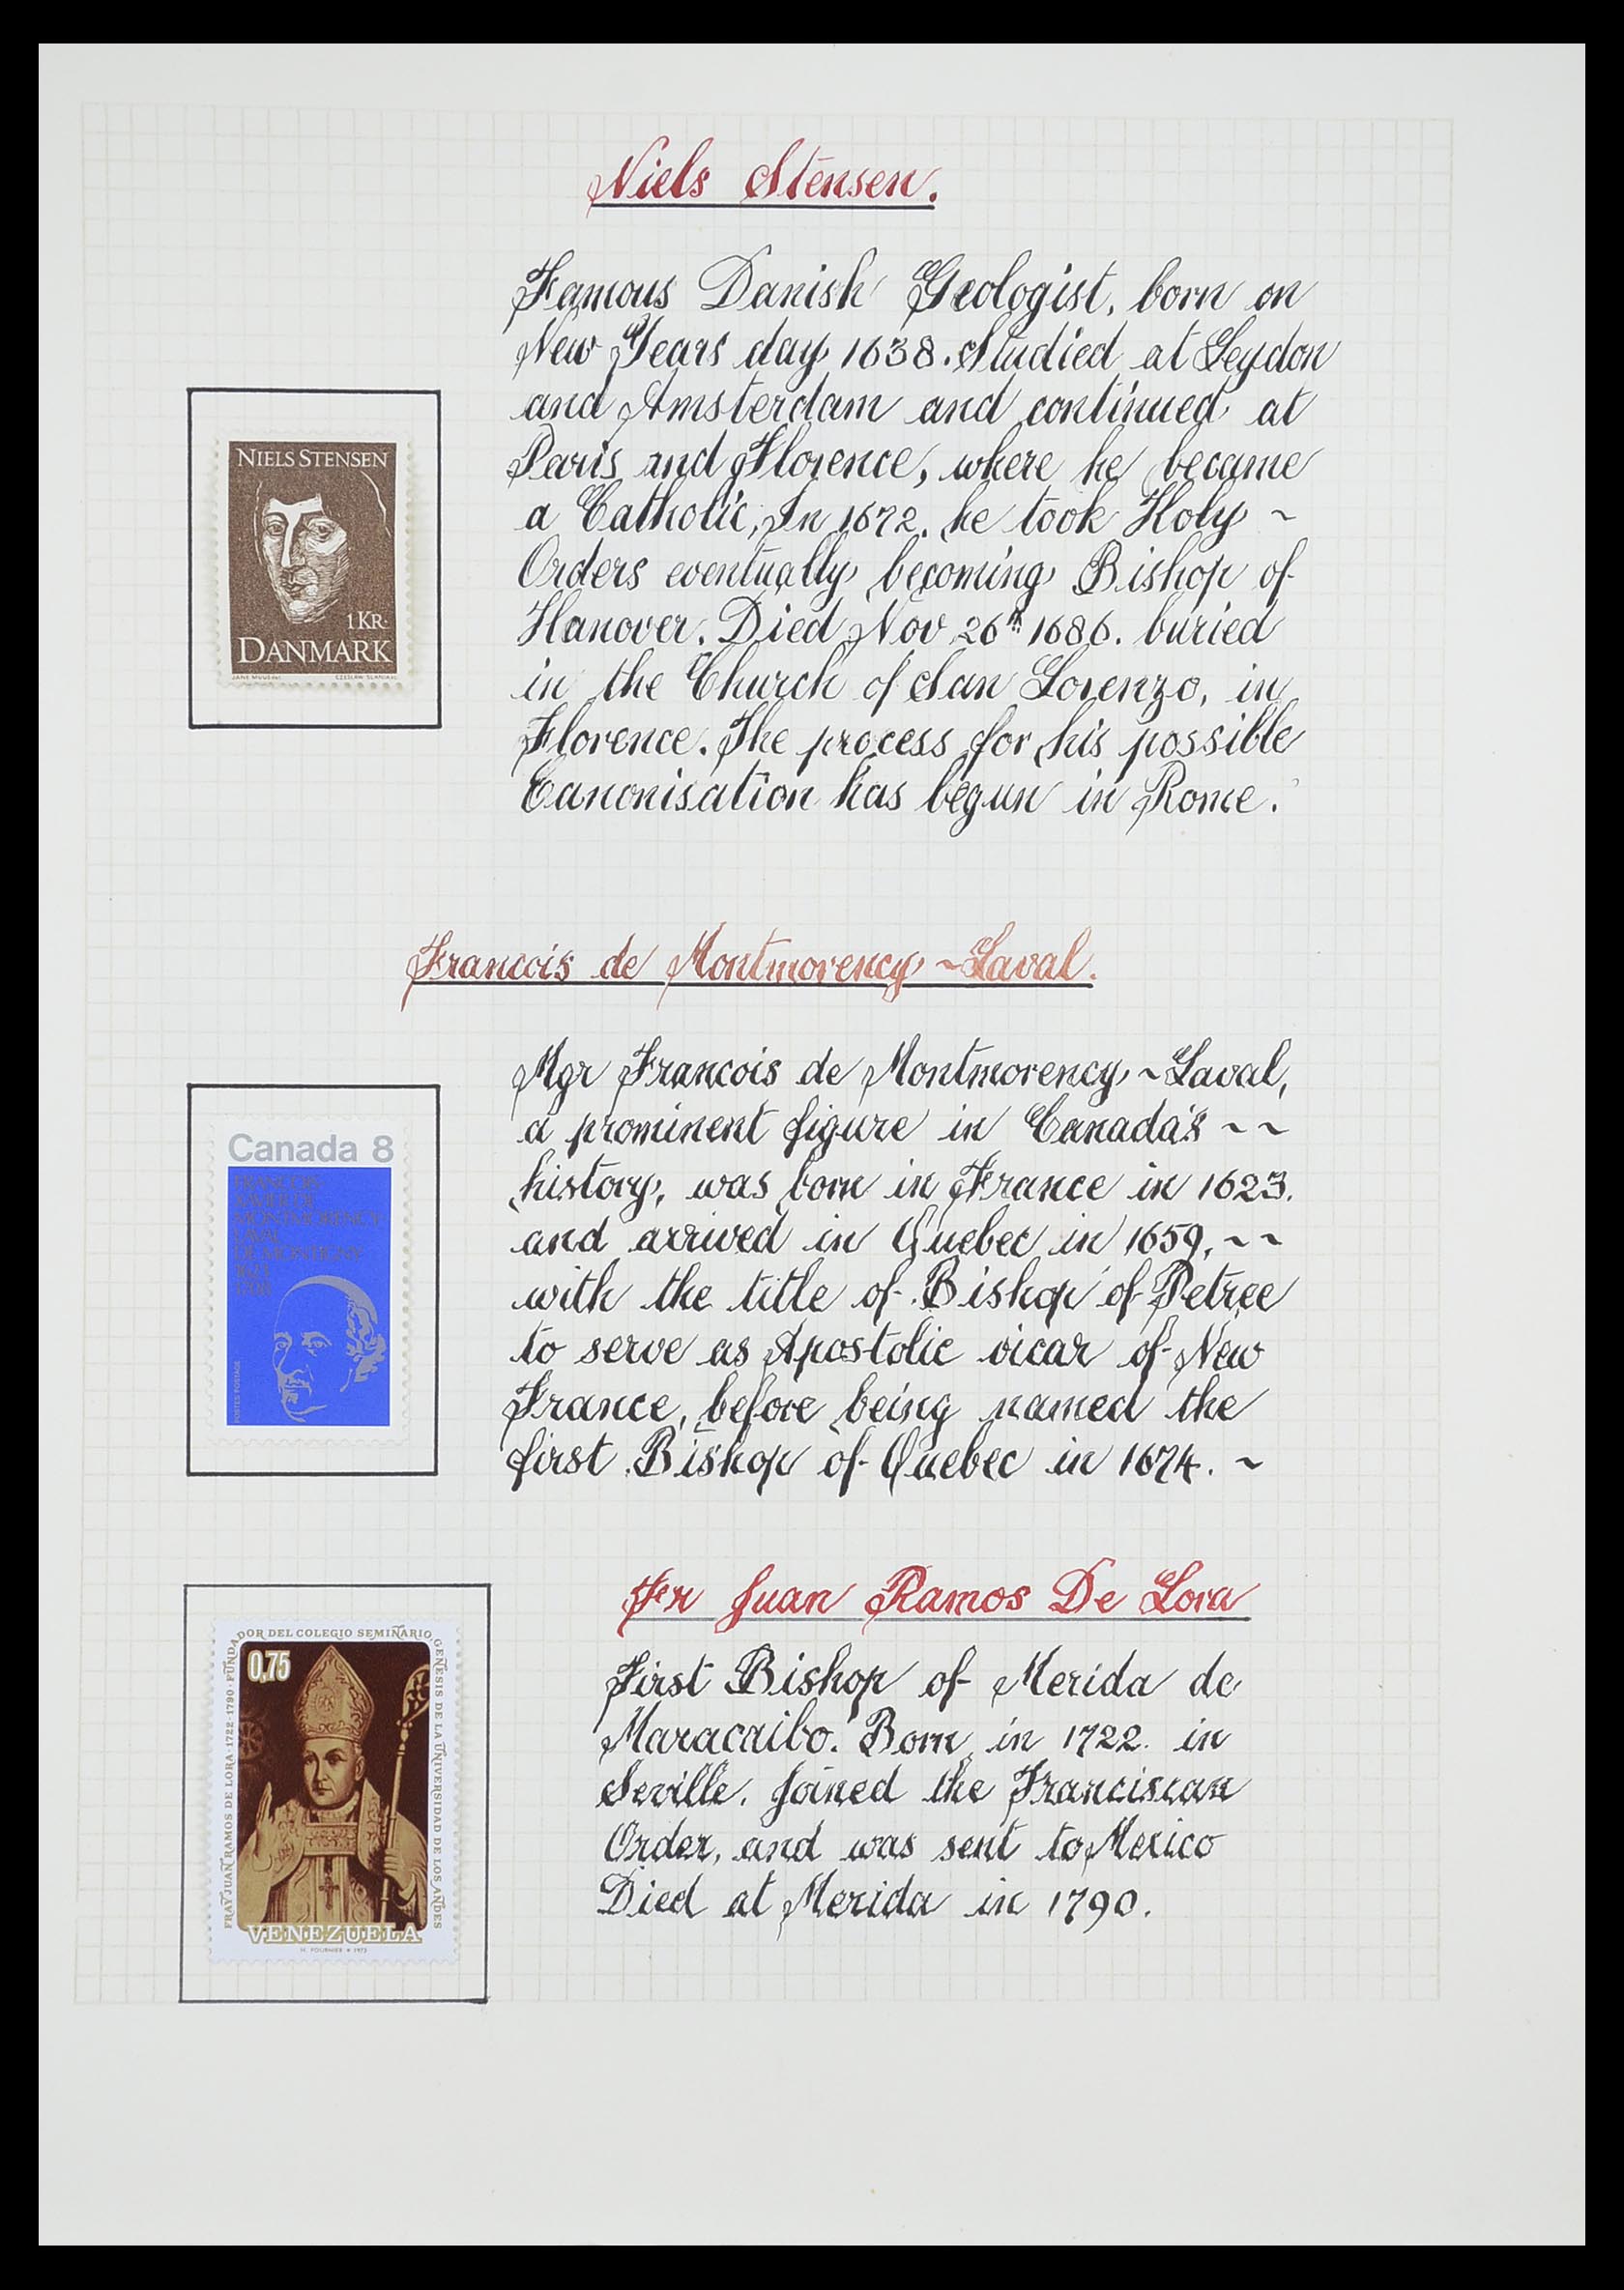 Niels Stensen.
Famous Danish Geologist, born on
New Years day 1638. Studied at Leydon
and Amsterdam and continued at
Paris and Florence, where he became
a Catholic, In 1672. he took Holy ~
Orders eventually becoming Bishop of
Hanover. Died Nov 26th 1686. buried
in the Church of San Lorenzo, in
Florence. The process for his possible
Canonisation has begun in Rome.
NIELS STENSEN
1 KR.
DANMARK
JANE MUUS DEL. CZESLAW SLANIA SC.
Francois de Montmorency ~ Laval.
Mgr Francois de Montmorency ~ Laval,
a prominent figure in Canada's ~ ~
history, was born in France in 1623.
and arrived in Quebec in 1659. ~ ~
with the title of Bishop of Petree
to serve as Apostolic vicar of New
France, before being named the
first Bishop of Quebec in 1674. ~
Canada 8
FRANÇOIS
XAVIER DE
MONTMORENCY
LAVAL
DE MONTIGNY
1623
1708
POSTES POSTAGE
Fr Juan Ramos De Lora
First Bishop of Merida de
Maracaibo. Born in 1722. in
Seville. Joined the Franciscan
Order, and was sent to Mexico
Died at Merida in 1790.
FRAY JUAN RAMOS DE LORA · 1722 · 1790 · FUNDADOR DEL COLEGIO SEMINARIO GENESIS DE LA UNIVERSIDAD DE LOS ANDES
0,75
VENEZUELA
H. FOURNIER * 1973